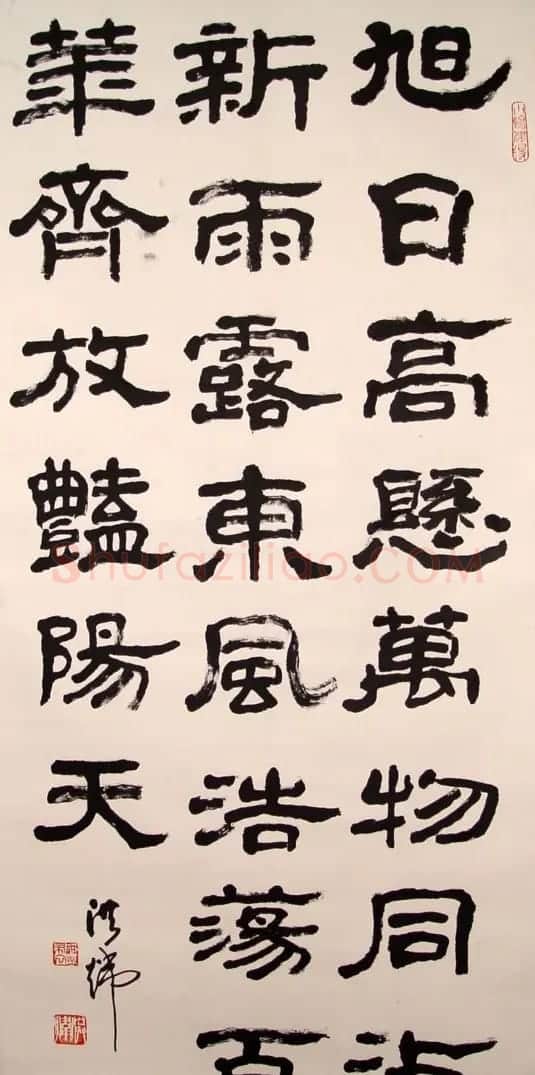 旭日高懸萬物同沾
新雨露東風浩蕩百
華齊放豔陽天
Shufaziliao.COM